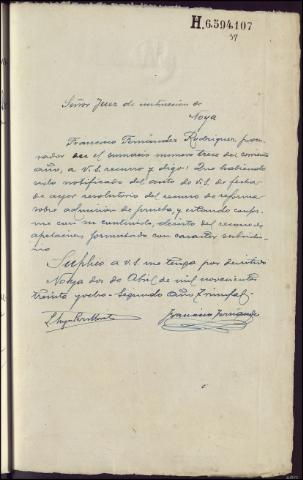 H.6.594.107
37
Señor Juez de instrucción de
Noya
Francisco Fernández Rodriguez, procu-
rador en el sumario numero trece del corriente
año, a V.S. recurro y digo: Que habiendo
sido notificado del auto de V.S. de fecha
de ayer resolutorio del recurso de reforma
sobre admision de prueba, y estando confor-
me con su contenido, desisto del recurso de
apelacion formulado con caracter subsidia-
rio
Suplico a V.S. me tenga por desistido
Noya dos de Abril de mil novecientos
treinta y ocho - Segundo Año Triunfal -
Francisco Fernández